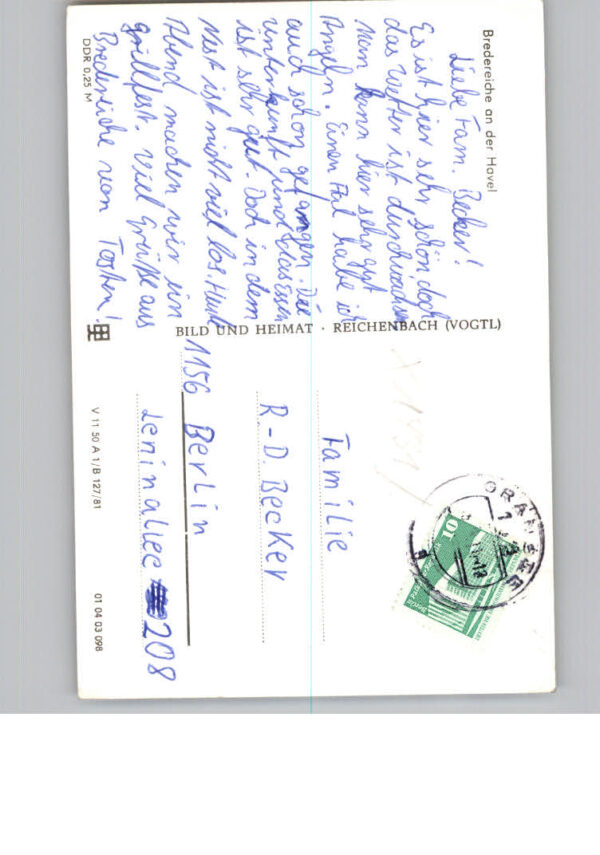 Bredereiche an der Havel
Liebe Fam. Becker!
Es ist hier sehr schön, doch
das Wetter ist durchwachsen
Man kann hier sehr gut
Angeln. Einen Aal habe ich
auch schon gefangen. Die
Unterkunft und das Essen
ist sehr gut. Doch in dem
Nest ist nicht viel los. Heut
Abend machen wir ein
Grillfest. Viel Grüße aus
Bredereiche von Tosten!
DDR 0,25 M
BILD UND HEIMAT · REICHENBACH (VOGTL)
GRANSEE
10
Familie
R.-D. Becker
1156 Berlin
Leninallee 208
V 11 50 A 1/B 127/81
01 04 03 098